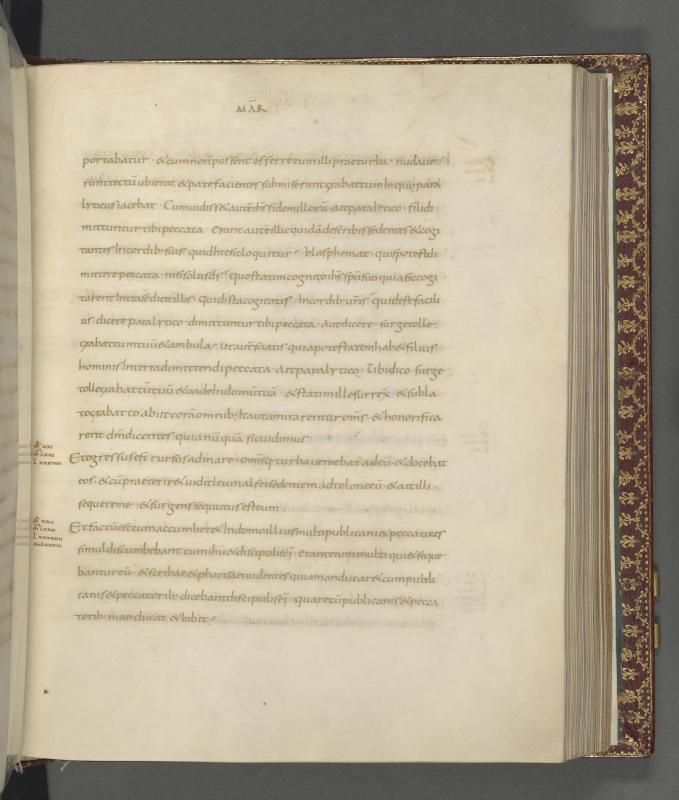 MAR̄
portabatur · & cum non possent offerre eum illi prae turba · nudaue
runt tectū ubi erat & patefacientes submiserunt grabattum In quo para
lyticus iacebat · Cum uidiss& autē ihs fidem illorū · ait paralytico · fili di
mittuntur tibi peccata · Erant autē illic quidā de scribis sedentes & cogi
tantes In cordib; suis · quid hic sic loquitur · blasphemat · quis potest di
mittere peccata · nisi solus ds̄ · quo statim cognito ihs̄ spū suo quia sic cogi
tarent Intra se dicit illis · Quid ista cogitatis In cordib; ur̄is · quid est facili
us · dicere paralytico · dimittuntur tibi peccata · aut dicere · surge tolle
grabattum tuū & ambula · Ut autē sciatis quia potestatem hab& filius
hominis In terra dimittendi peccata · ait paralytico · Tibi dico surge
tolle grabattū tuū & uade In domū tuā · & statim ille surrex& · & subla
to grabatto abiit corā omnib; Ita ut ammirarentur om̄s · & honorifica
rent dm̄ dicentes · quia nū quā sic uidimus ·
Et egressus est rursus ad mare · omīsq; turba ueniebat ad eū · & docebat
eos · & cū praeterir& uidit leuin alfei sedentem ad teloneū · & ait illi ·
sequere me · & surgens secutus est eum ·
Et factū est cum accumber& In domo illius multi publicani & peccatores
simul discumbebant cum ihu & discipulis ei; · erant enim multi qui & seque
bantur eū · & scribae & pharisaei uidentes quia manducar& cum publi
canis & peccatorib; dicebant discipulis ei; · quare cū publicanis & pecca
torib; manducat & bibit ·